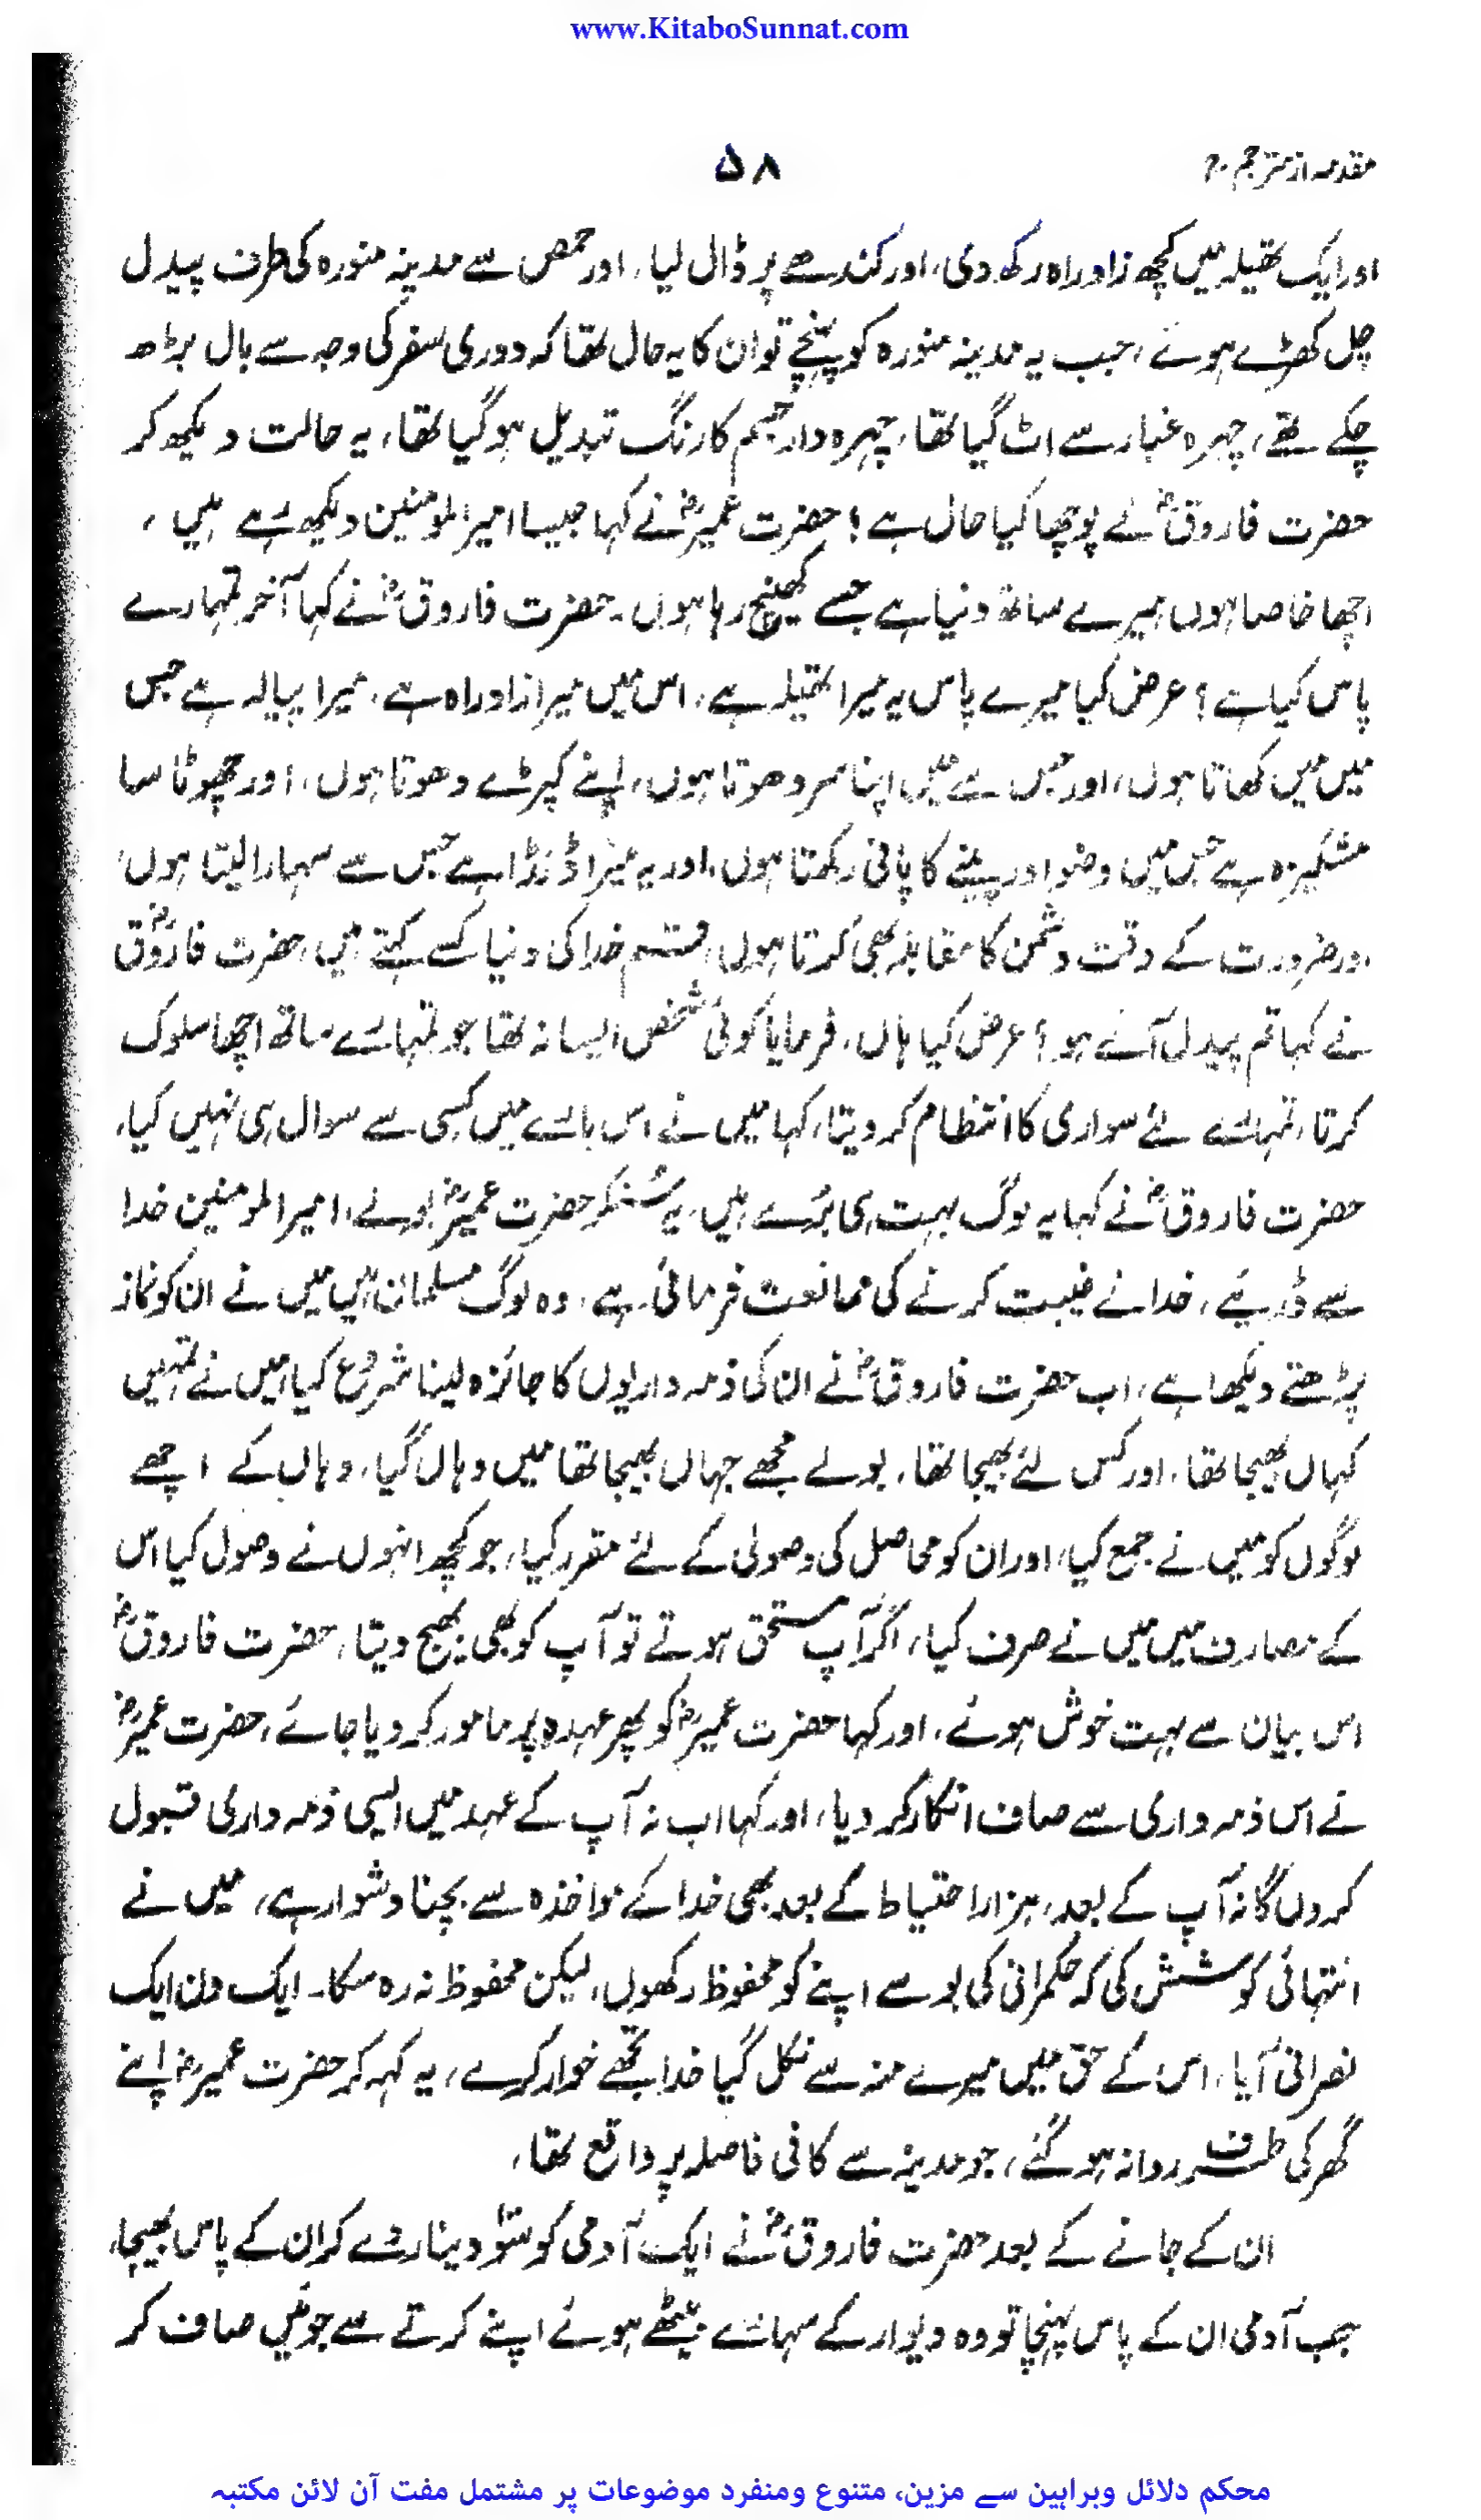 www.KitaboSunnat.com
مقدمہ از مترجم ۵۸
اور ایک تھیلہ میں کچھ زاد راہ رکھ دی، اور کندھے پر ڈال لیا، اور حمص سے مدینہ منورہ کی طرف پیدل
چل کھڑے ہوئے، جب یہ مدینہ منورہ کو پہنچے تو ان کا یہ حال تھا کہ دوری سفر کی وجہ سے بال بڑھ
چکے تھے، چہرہ غبار سے اٹ گیا تھا، چہرہ دار جسم کا رنگ تبدیل ہو گیا تھا، یہ حالت دیکھ کر
حضرت فاروقؓ نے پوچھا کیا حال ہے؟ حضرت عمیرؓ نے کہا جیسا امیر المومنین دیکھ رہے ہیں،
اچھا خاصا ہوں میرے ساتھ دنیا ہے جسے کھینچ رہا ہوں۔ حضرت فاروقؓ نے کہا آخر تمہارے
پاس کیا ہے؟ عرض کیا میرے پاس یہ میرا تھیلہ ہے، اس میں میرا زاد راہ ہے، میرا پیالہ ہے جس
میں میں کھاتا ہوں، اور جس سے میں اپنا سر دھوتا ہوں، اپنے کپڑے دھوتا ہوں، اور چھوٹا سا
مشکیزہ ہے جس میں وضو اور پینے کا پانی رکھتا ہوں، اور یہ میرا ڈنڈا ہے جس سے سہارا لیتا ہوں،
اور ضرورت کے وقت دشمن کا مقابلہ بھی کرتا ہوں، قسم خدا کی دنیا کسے کہتے ہیں، حضرت فاروقؓ
نے کہا تم پیدل آئے ہو؟ عرض کیا ہاں، فرمایا کوئی شخص ایسا نہ تھا جو تمہارے ساتھ اچھا سلوک
کرتا، تمہارے لئے سواری کا انتظام کر دیتا، کہا میں نے اس بارے میں کسی سے سوال ہی نہیں کیا،
حضرت فاروقؓ نے کہا یہ لوگ بہت ہی بُرے ہیں، یہ سُنکر حضرت عمیرؓ بولے، امیر المومنین خدا
سے ڈریئے، خدا نے غیبت کرنے کی ممانعت فرمائی ہے، وہ لوگ مسلمان ہیں میں نے ان کو نماز
پڑھتے دیکھا ہے، اب حضرت فاروقؓ نے ان کی ذمہ داریوں کا جائزہ لینا شروع کیا، میں نے تمہیں
کہاں بھیجا تھا، اور کس لئے بھیجا تھا، بولے مجھے جہاں بھیجا تھا میں وہاں گیا، وہاں کے اچھے
لوگوں کو میں نے جمع کیا، اور ان کو محاصل کی وصولی کے لئے مقرر کیا، جو کچھ انہوں نے وصول کیا اس
کے مصارف میں میں نے صرف کیا، اگر آپ مستحق ہوتے تو آپ کو بھی بھیج دیتا، حضرت فاروقؓ
اس بیان سے بہت خوش ہوئے، اور کہا حضرت عمیرؓ کو پھر عہدہ پر مامور کر دیا جائے، حضرت عمیرؓ
نے اس ذمہ داری سے صاف انکار کر دیا، اور کہا اب نہ آپ کے عہد میں ایسی ذمہ داری قبول
کروں گا نہ آپ کے بعد، ہزار احتیاط کے بعد بھی خدا کے مواخذہ سے بچنا دشوار ہے، میں نے
انتہائی کوشش کی کہ حکمرانی کی بو سے اپنے کو محفوظ رکھوں، لیکن محفوظ نہ رہ سکا۔ ایک دن ایک
نصرانی آیا، اس کے حق میں میرے منہ سے نکل گیا خدا تجھے خوار کرے، یہ کہہ کر حضرت عمیرؓ اپنے
گھر کی طرف روانہ ہو گئے، جو مدینہ سے کافی فاصلہ پر واقع تھا،
ان کے جانے کے بعد حضرت فاروقؓ نے ایک آدمی کو سَو دینار دے کر ان کے پاس بھیجا،
جب آدمی ان کے پاس پہنچا تو وہ دیوار کے سہارے بیٹھے ہوئے اپنے کرتے سے جوئیں صاف کر
محکم دلائل وبراہین سے مزین، متنوع ومنفرد موضوعات پر مشتمل مفت آن لائن مکتبہ